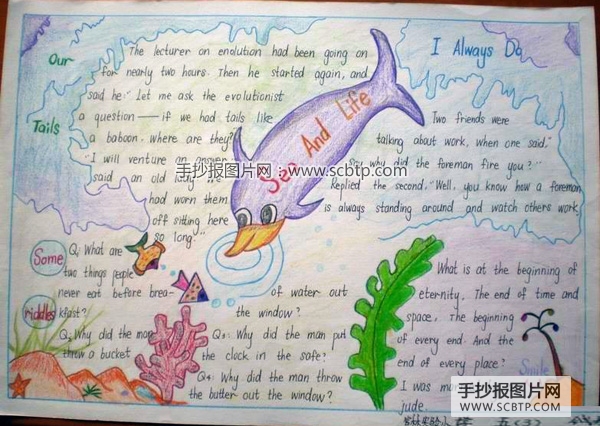 Our
Tails
The lecturer on enolution had been going on
for nearly two hours. Then he started again, and
said he " Let me ask the evolutionist
a question — if we had tails like
a baboon. where are they?
"I will venture an answer
said an old lady.
had worn them
off sitting here
so long."
Sea And Life
I Always Do
Two friends were
talking about work, when one said."
Say why did the foreman fire you?"
Replied the second. "Well, you know how a foreman
is always standing around and watch others work.
手抄报图片网：www.scbtp.com
Some
riddles
Q1 What are
two things people
never eat before brea-
kfast?
Q2 Why did the man
threw a bucket
of water out
the window?
Q3: Why did the man put
the clock in the safe?
Q4: Why did the man throw
the butter out the window?
What is at the beginning of
eternity, The end of time and
space, The beginning
of every end. And the
end of every place?
Smile
I was
jude.
手抄报图片网
WWW.SCBTP.COM